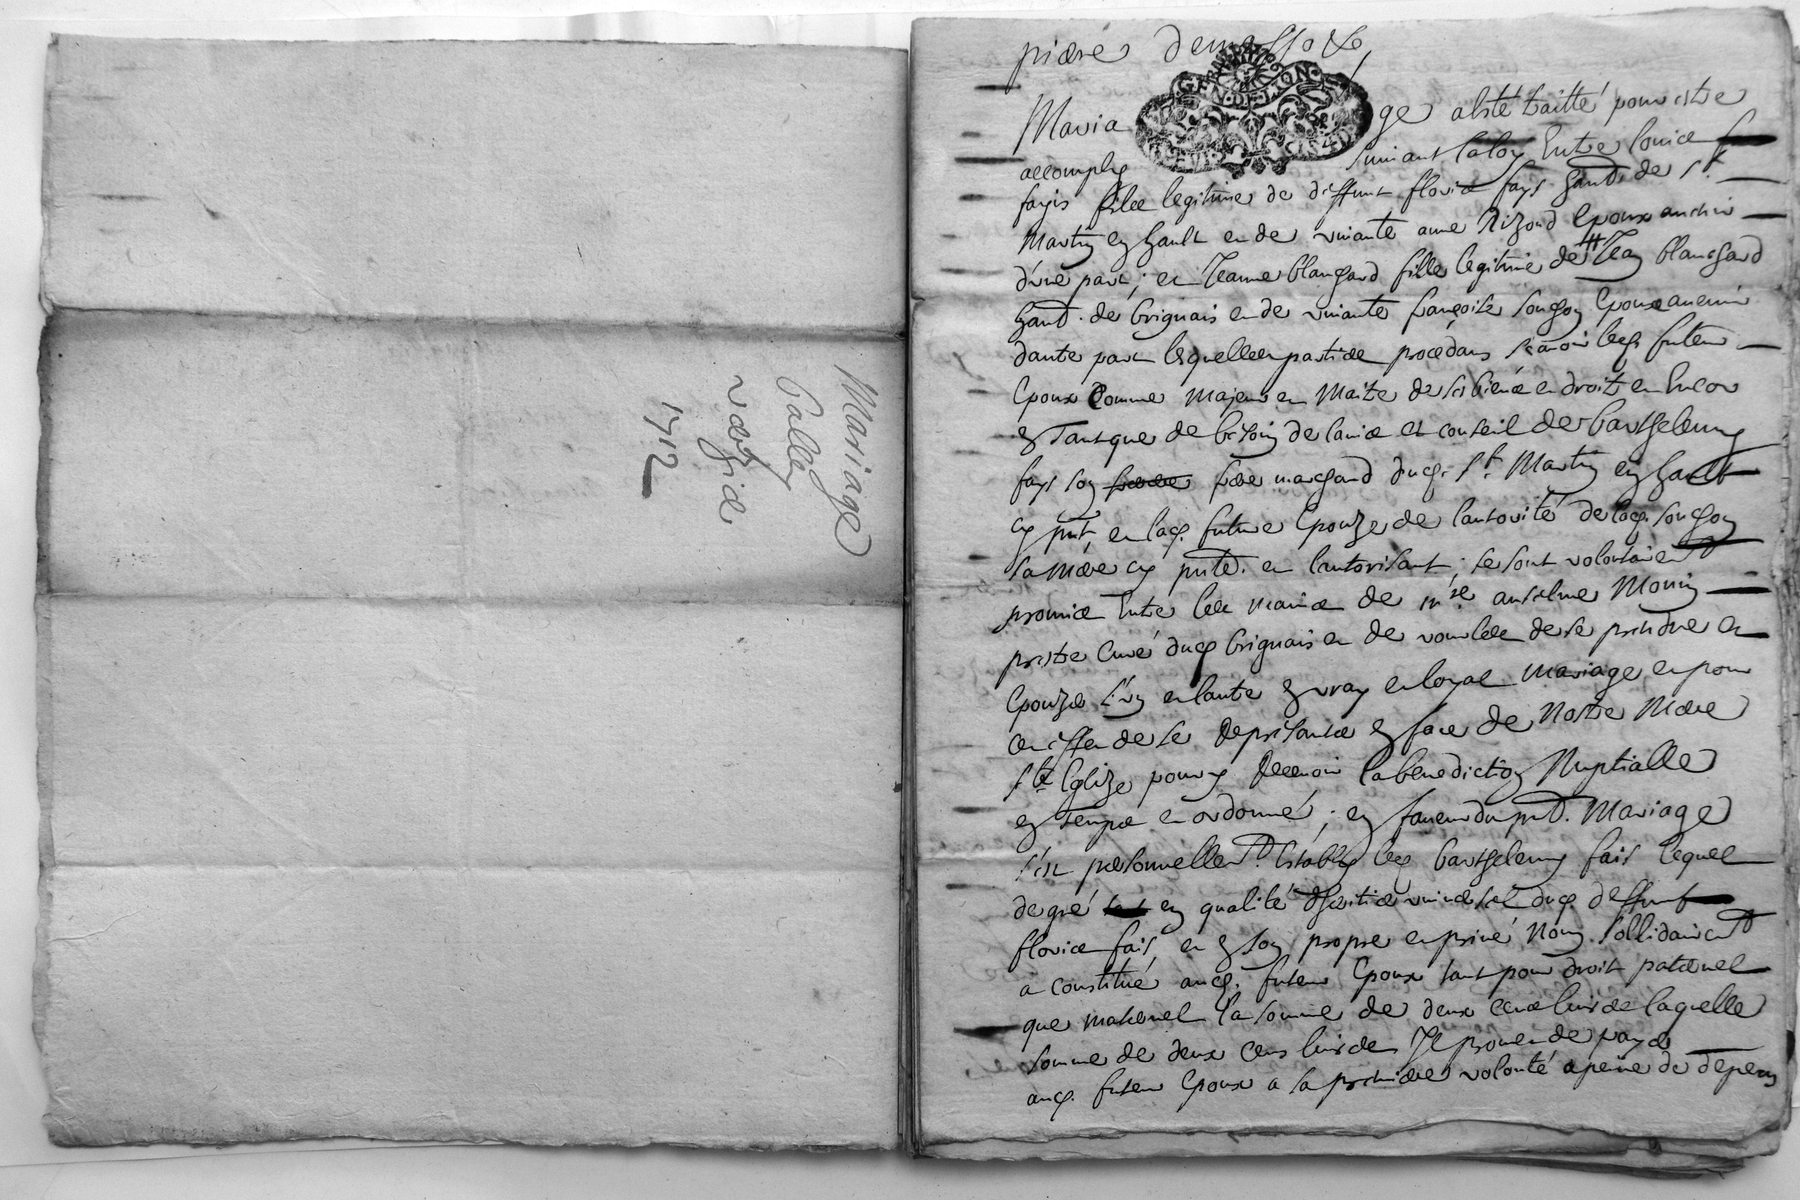 Mariage
Palley
1712
piere
GEN·DE·LYON
Maria ge a esté traitté pour estre
accomply suivant la loy Entre Louies
fays fils legitime de deffunt florie fays hand. de St.
Martin en hault et de vivante anne Rizoud Epouze
d'une part; et Jeanne blanchard fille legitime de Jean blanchard
hand. de brignais et de vivante françoise Epouze
d'autre part lesquelles parties procedans sçavoir led. futeur
Epoux Comme majeur et Maitre de ses biens et droits et Encor
en tant que de besoin de l'avis et conseil de barthelemy
fays son frere marchand dud. St. Martin en hault
cy pnt. et lad. future Epouze de l'autorité de lad.
sa Mere cy pnte. et l'autorisant; se sont volontairemt
promis Entre les mains de mre anselme
prestre Curé dud brignais et de vouloir de se prendre et
Epouze l'un et l'autre en vray et loyal Mariage et pour
cet effet de se en face de Nostre Mere
Ste Eglize pour y recevoir la benediction Nuptialle
en temps et ordonné; en faveur du pnt. Mariage
s'est personnellemt. Estably led barthelemy fais lequel
de gré en qualité d'heritier universel dud. deffunt
florie fais, et en son propre et privé Nom sollidairemt
a constitué aud. futeur Epoux tant pour droit paternel
que maternel la somme de deux cens livres laquelle
somme de deux cens livres Il promet de payer
aud. futeur Epoux a sa premiere volonté a peine de depens